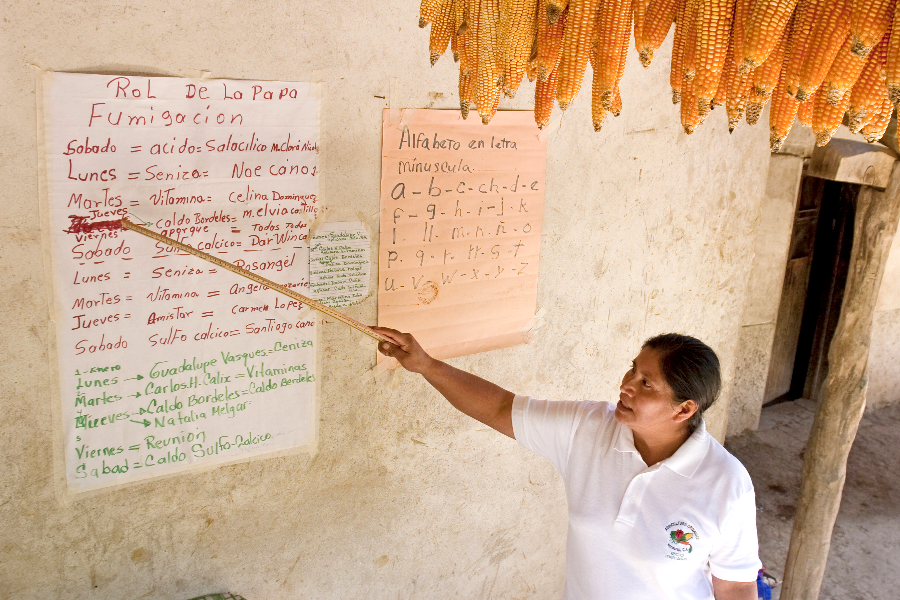 RoL De La Papa
Fumigación
Sabado = acido = Salacilico M. Clara
Lunes = Seniza = Noe canos
Martes = Vitamina = Celina Dominguez
Jueves = Caldo Bordeles = m. elvia castillo
Viernes aporque = Todos Todos
Sabado = Sulfo calcico = Dar Winca
Lunes = Seniza = Rosangel
Martes = Vitamina = Angela
Jueves = Amistar = Carmen Lopez
Sabado Sulfo calcico = Santiago cano
1 - Enero
Lunes → Guadalupe Vasques = Ceniza
Martes → Carlos. H. Calix = Vitaminas
Mircoves → Caldo Bordeles = Caldo Bordeles
→ Natalia Melgar
Viernes = Reunión
Sabad = Caldo Sulfo-Calcico.
Alfabeto en letra
minuscula.
a - b - c - ch - d - e
f - g - h - i - j - k
l - ll - m - n - ñ - o
p - q - r - rr - s - t
u - v - w - x - y - z